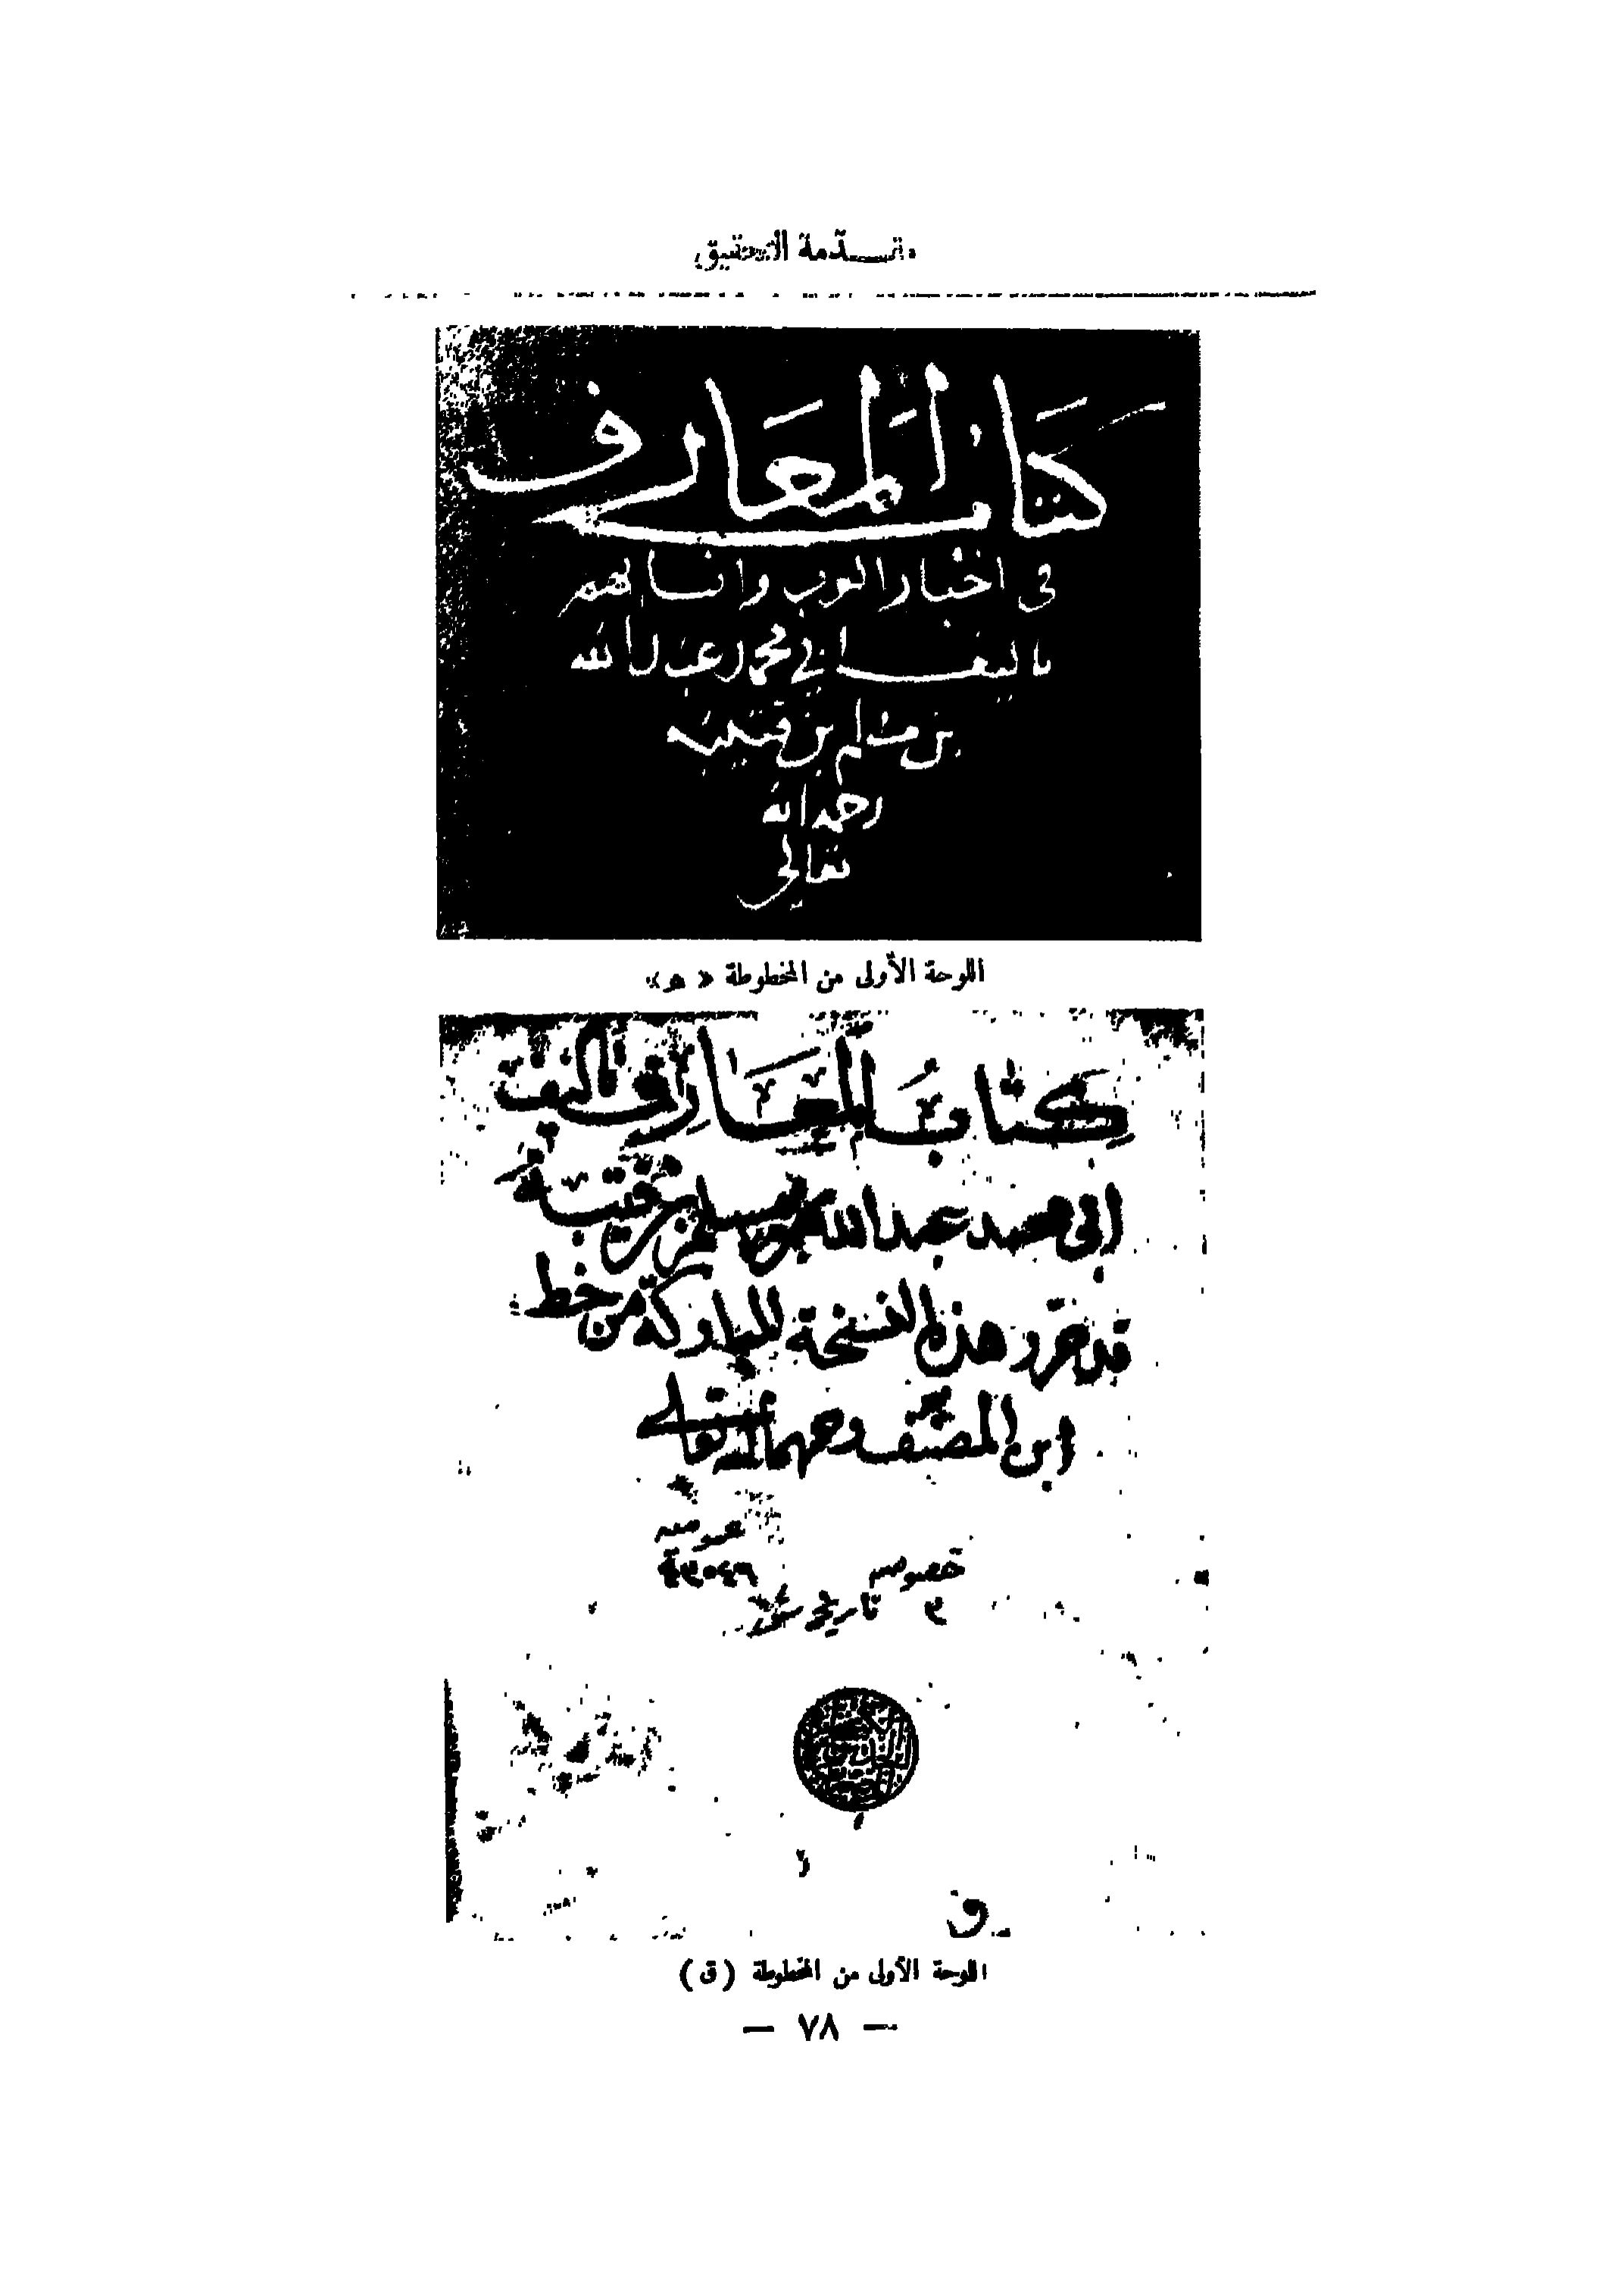 مقدمة التحقيق
كتاب المعارف
فى اخبار العرب وانسابهم
تاليف ابي محمد عبد الله
بن مسلم بن قتيبه
رحمه الله
تعالى
اللوحة الأولى من المخطوطة « هـ »
كتاب المعارف تاليف
ابى محمد عبد الله بن مسلم بن قتيبة
قد حرر هذه النسخة المباركة من خط
ابن المصنف رحمهما الله تعالى
خصوصيه عموميه
٣ تاريخ ٤٣٥٤٦
اللوحة الأولى من المخطوطة (ق)
— ٧٨ —